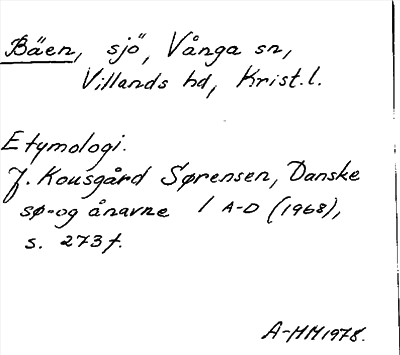 Bäen, sjö, Vånga sn,
Villands hd, Krist.l.
Etymologi.
J. Kousgård Sørensen, Danske
sø- og ånavne 1 A-D (1968),
s. 273f.
A-MM1978.